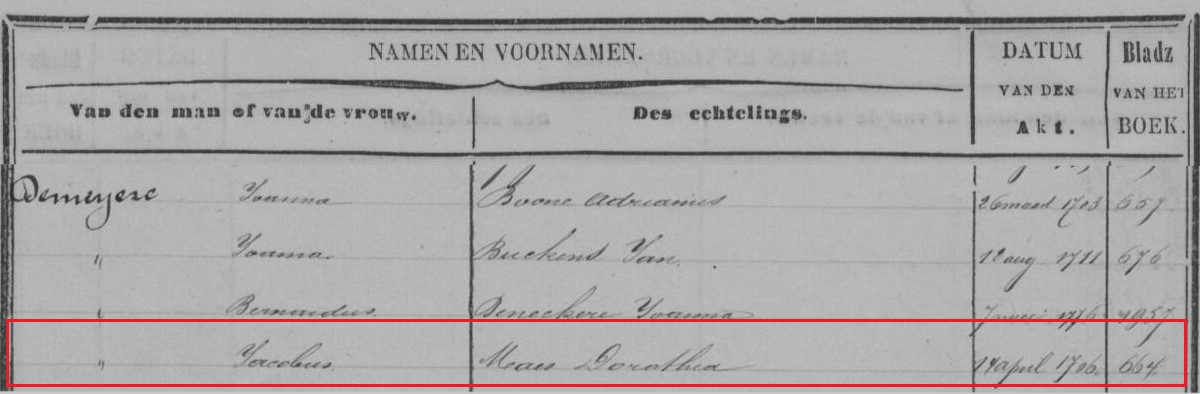 NAMEN EN VOORNAMEN. DATUM Bladz
VAN DEN VAN HET
Van den man of van de vrouw. Des echtelings. Akt. BOEK.
Demeyere Joanna Boone Adrianus 26 maart 1703 657
" Joanna Buckens Jan 12 aug 1711 676
" Bernardus Deneckere Joanna 1776 1957
" Jacobus Maes Dorothea 14 april 1706 664